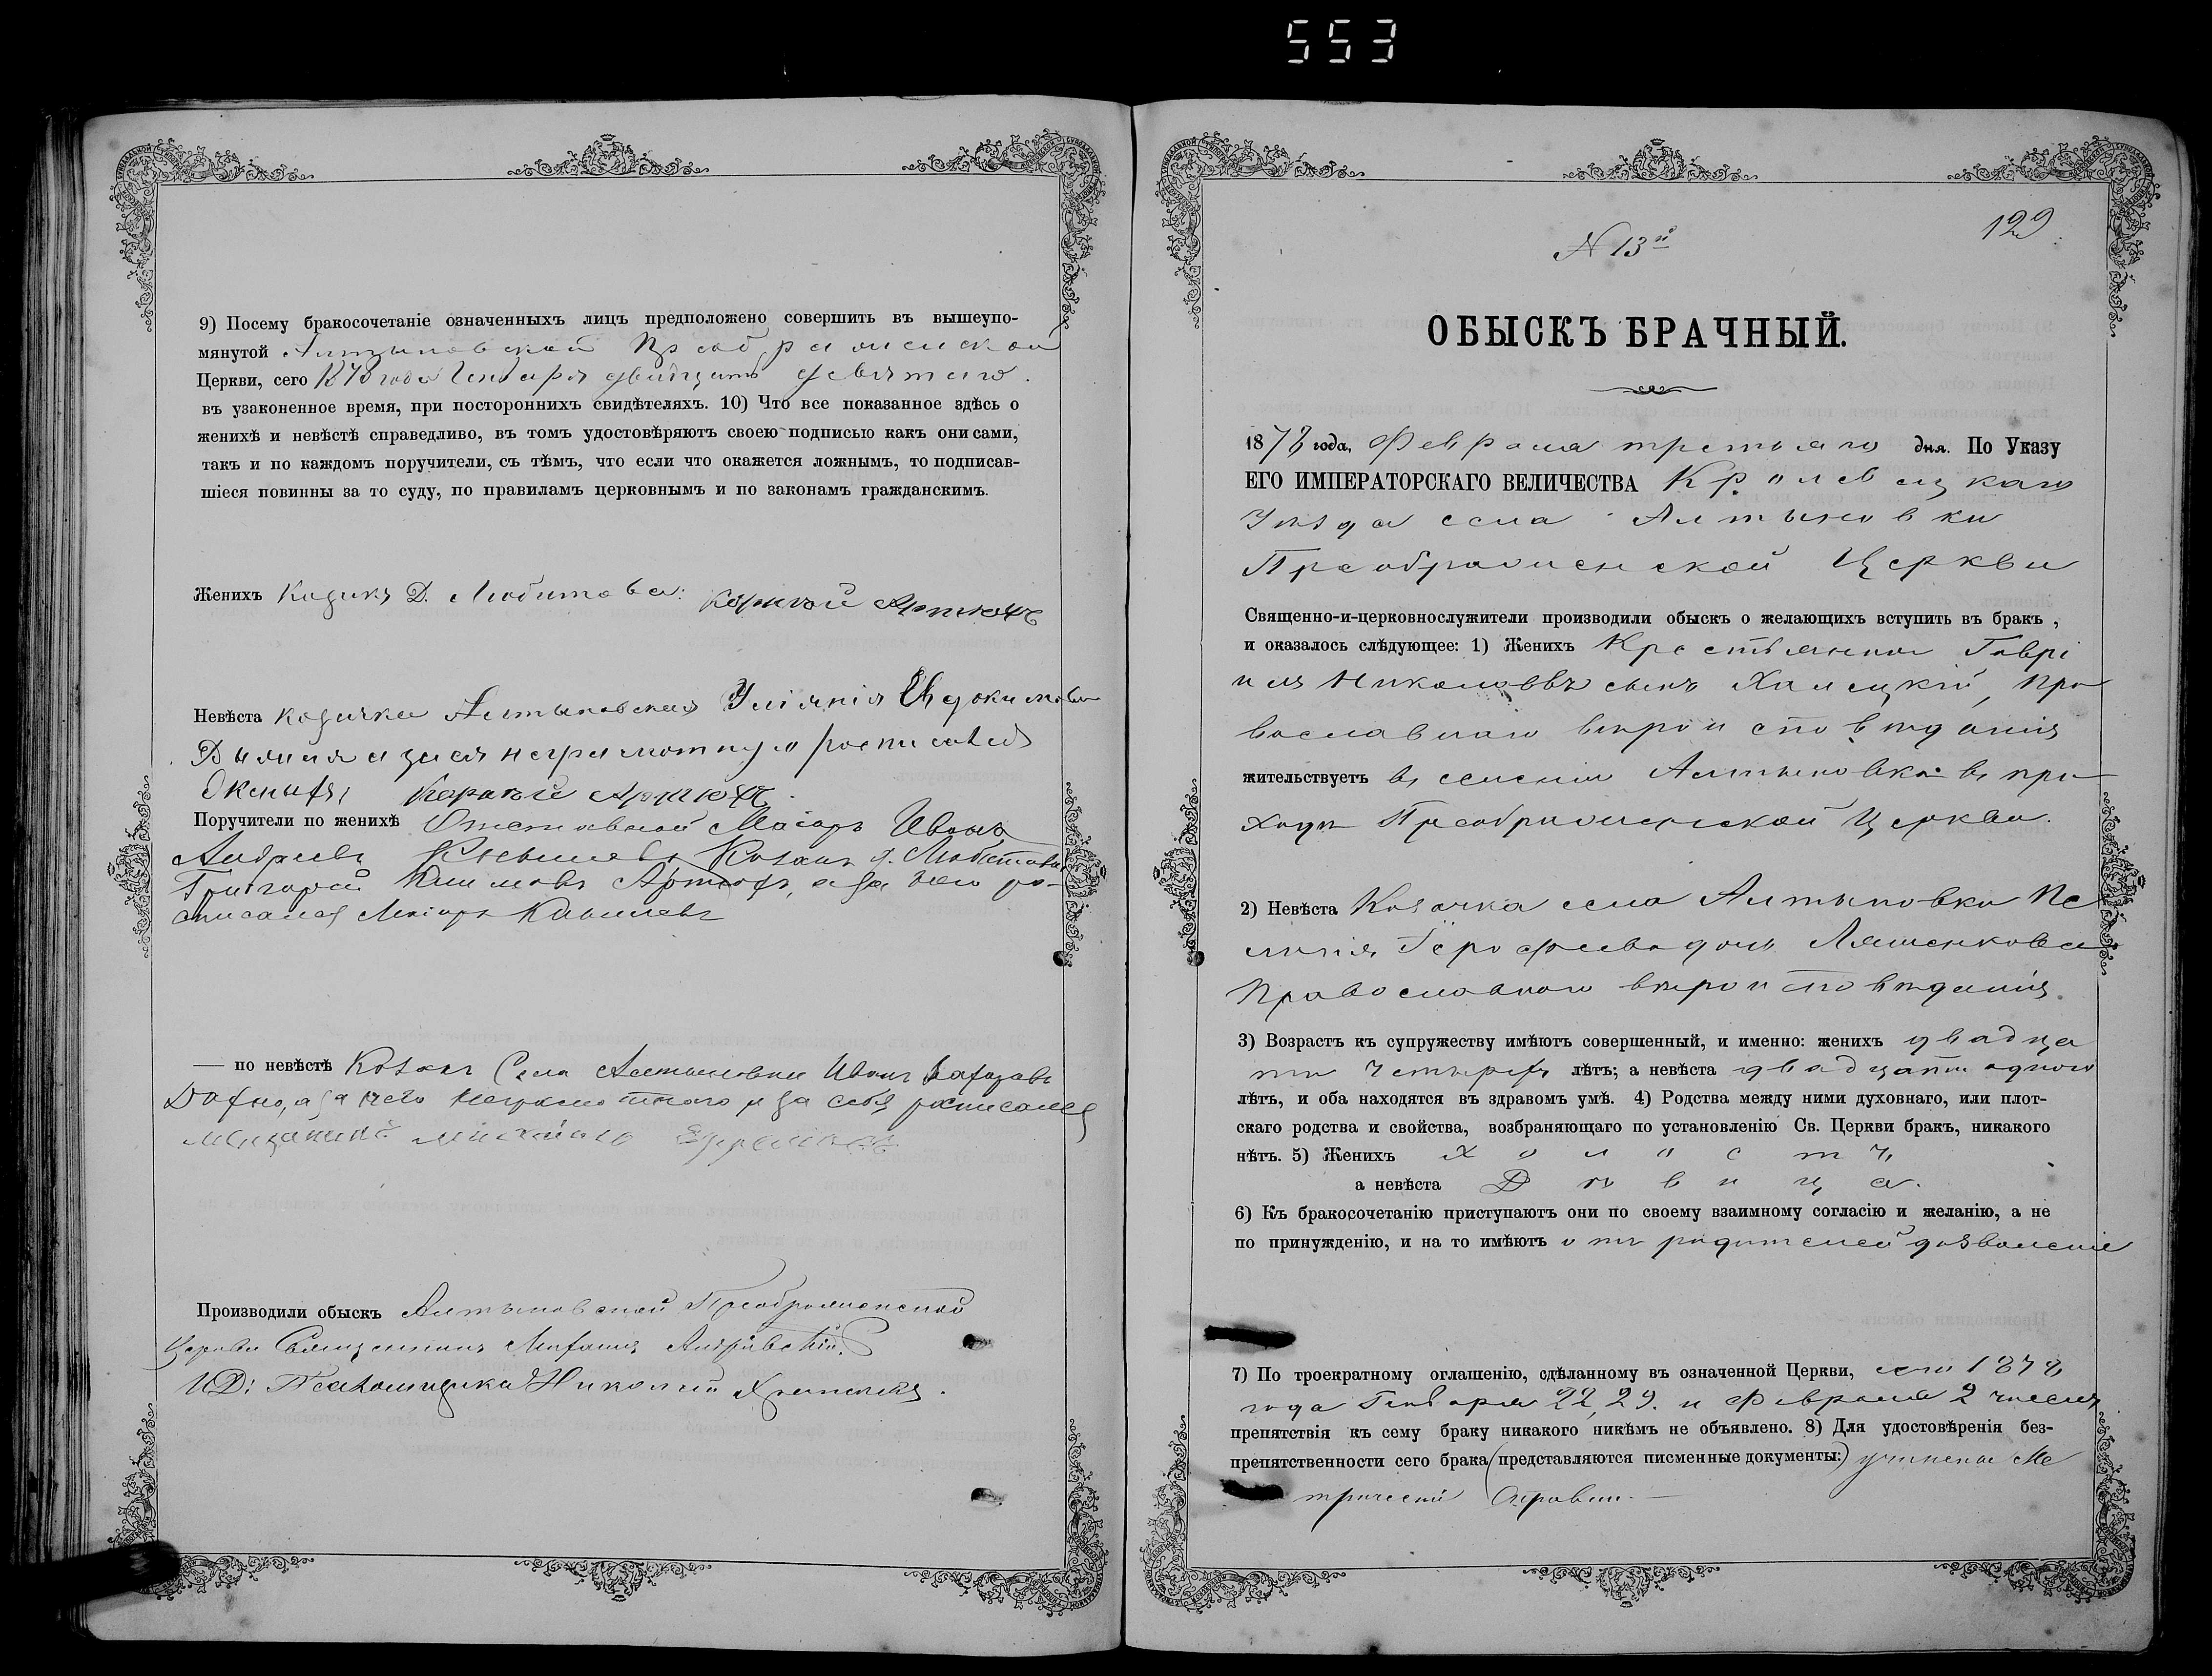 553
9) Посему бракосочетаніе означенныхъ лицъ предположено совершить въ вышеупо-
мянутой Алтыновской Преображенской
Церкви, сего 1878 года Генваря двадцать девятаго.
въ узаконенное время, при постороннихъ свидѣтеляхъ. 10) Что все показанное здѣсь о
женихѣ и невѣстѣ справедливо, въ томъ удостовѣряютъ своею подписью какъ они сами,
такъ и по каждомъ поручители, съ тѣмъ, что если что окажется ложнымъ, то подписав-
шіеся повинны за то суду, по правиламъ церковнымъ и по законамъ гражданскимъ.
Женихъ Казакъ Д. Любитова:
Невѣста козачка Алтыновская Уліянія Евдокимова
неграмотную росписался
Поручители по женихѣ Отставной Маіоръ Иванъ
Андреевъ Козакъ д. Любитова
Григорій Климовъ а за него ро-
списался Маіоръ
— по невѣстѣ Козакъ Села Алтыновки Иванъ
а за него неграмотнаго и за себя росписался
мещанинъ
Производили обыскъ Алтыновской Преображенской
Церкви Священникъ
И.Д: Псаломщика Николай
N 13й
129
ОБЫСКЪ БРАЧНЫЙ.
1878 года, Февраля третьяго дня. По Указу
ЕГО ИМПЕРАТОРСКАГО ВЕЛИЧЕСТВА Кролевецкаго
Уѣзда села Алтыновки
Преображенской Церкви
Священно-и-церковнослужители производили обыскъ о желающихъ вступить въ бракъ ,
и оказалось слѣдующее: 1) Женихъ Крестьянинъ Гаврі
илъ Николаевъ сынъ Халецкій, Пра
вославнаго вѣроисповѣданія
жительствуетъ въ селеніи Алтыновка въ при
ходѣ Преображенской Церкви.
2) Невѣста Козачка села Алтыновки Пе
лагія Героѳеева дочь Ляшенкова
Православнаго вѣроисповѣданія.
3) Возрастъ къ супружеству имѣютъ совершенный, и именно: женихъ двадца
ти четырехъ лѣтъ; а невѣста двадцати одного
лѣтъ, и оба находятся въ здравомъ умѣ. 4) Родства между ними духовнаго, или плот-
скаго родства и свойства, возбраняющаго по установленію Св. Церкви бракъ, никакого
нѣтъ. 5) Женихъ Холостъ,
а невѣста Дѣвица.
6) Къ бракосочетанію приступаютъ они по своему взаимному согласію и желанію, а не
по принужденію, и на то имѣютъ отъ родителей дозволеніе
7) По троекратному оглашенію, сдѣланному въ означенной Церкви, сего 1878
года Генваря 22, 29. и Февраля 2 числа
препятствія къ сему браку никакого никѣмъ не объявлено. 8) Для удостовѣренія без-
препятственности сего брака (представляются писменные документы:) учинена Ме
трической Справки.